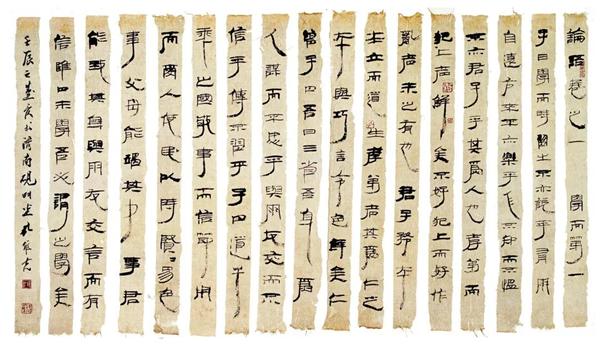 論語卷之一 學而第一
子曰學而時習之不亦說乎有朋
自遠方來不亦樂乎人不知而不慍
不亦君子乎其爲人也孝弟而
犯上者鮮矣不好犯上而好作
亂者未之有也 君子務本
本立而道生孝弟者其爲仁之
本與巧言令色鮮矣仁
曾子曰吾日三省吾身 爲
人謀而不忠乎與朋友交而不
信乎傳不習乎子曰道千
乘之國敬事而信節用
而愛人使民以時賢賢易色
事父母能竭其力 事君
能致其身與朋友交言而有
信雖曰未學吾必謂之學矣
壬辰之夏於濟南硯